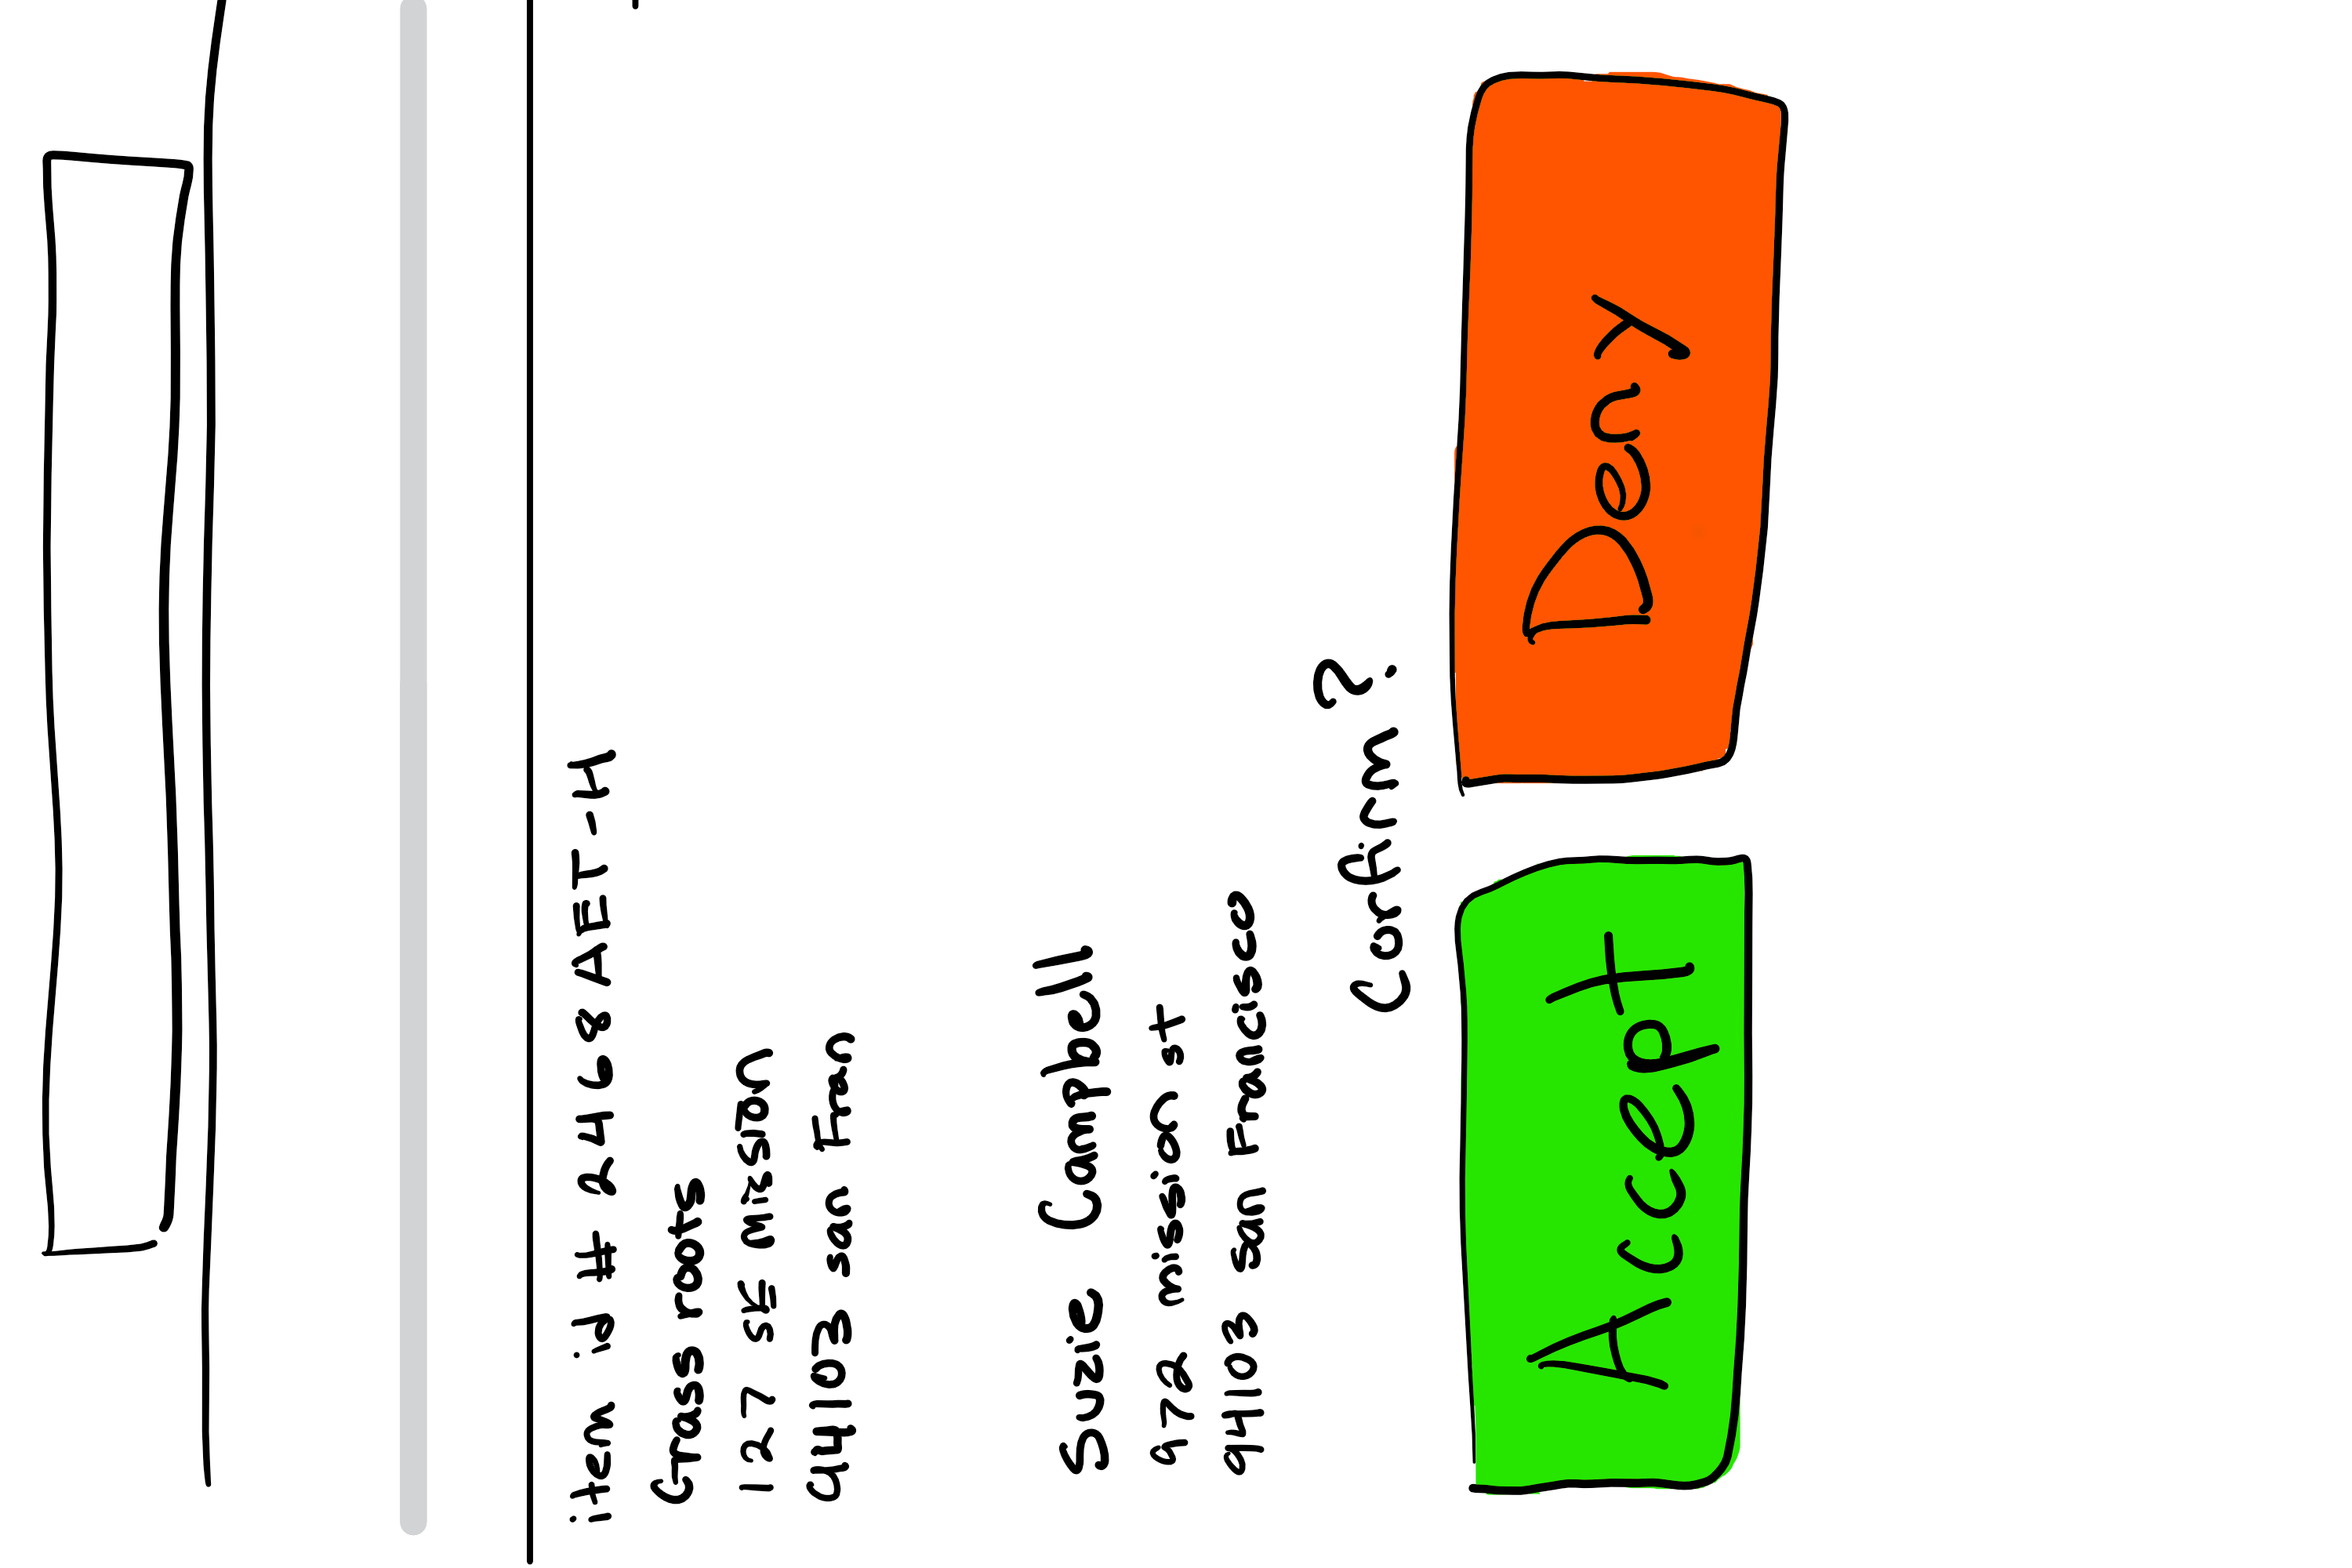 item id # 2468 AET-H
Grass roots
127 SE mission
94103 san Fran,
Suzie Campbell
972 mission st
94103 san Francisco
Confirm?
Accept
Deny